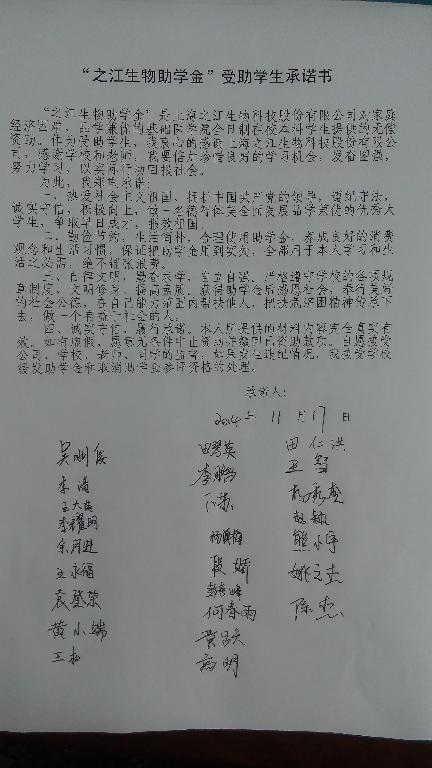 “之江生物助学金”受助学生承诺书
“之江生物助学金”是上海之江生物科技股份有限公司对家庭
经济困难、品学兼优的基础医学院全日制在校本科学生提供的无偿
资助。作为受助学生，我衷心的感谢上海之江生物科技股份有限公
司，感谢学校和老师，我要倍加珍惜良好的学习机会，发奋图强，
努力学习，以实际行动回报社会。
为此，我郑重承诺：
一、热爱社会主义祖国，拥护中国共产党的领导，遵纪守法，
诚实守信，积极向上，做一名德智体美全面发展品学兼优的优秀大
学生，争取早日成才，报效祖国。
二、勤俭节约，生活简朴，合理使用助学金，养成良好的消费
观念和生活习惯，保证把助学金用到实处，全部用于本人学习和生
活之必需，绝不铺张浪费。
三、自律文明，勤奋求学，自立自强，严格遵守学校的各项规
章制度，文明修身，提高素质。获得助学金后感恩社会，奉行美好
的社会公德，在自己能力范围内帮扶他人，把扶危济困精神传承下
去，做一个有益于社会的人。
四、诚实守信，履行承诺。本人所提供的材料内容完全真实有
效。如有虚假，愿意无条件中止资助并缴回已资助款项。自愿接受
公司、学校、老师、同学的监督，如果发生违纪情况，我接受学校
缓发助学金和取消助学金参评资格的处理。
承诺人：
2014年 11月17日
吴刚俊 田琴英 田仁洪
李涛 李鹏 卫智
王大英
李耀网 赵敏
余同进 熊小宇
王永福 段娇 姚文杰
袁登荣
黄小端 何春雨 陈杰
高明